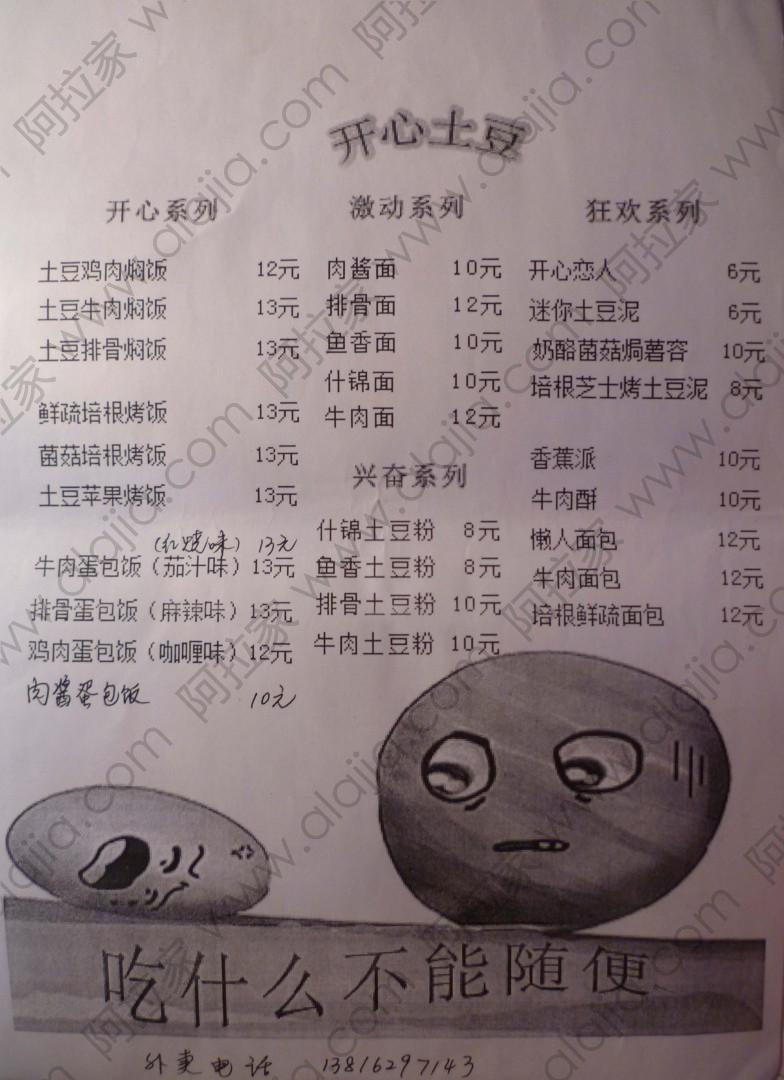 开心土豆
开心系列
土豆鸡肉焖饭 12元
土豆牛肉焖饭 13元
土豆排骨焖饭 13元
鲜疏培根烤饭 13元
菌菇培根烤饭 13元
土豆苹果烤饭 13元
(红烧味) 13元
牛肉蛋包饭（茄汁味）13元
排骨蛋包饭（麻辣味）13元
鸡肉蛋包饭（咖喱味）12元
肉酱蛋包饭 10元
激动系列
肉酱面 10元
排骨面 12元
鱼香面 10元
什锦面 10元
牛肉面 12元
兴奋系列
什锦土豆粉 8元
鱼香土豆粉 8元
排骨土豆粉 10元
牛肉土豆粉 10元
狂欢系列
开心恋人 6元
迷你土豆泥 6元
奶酪菌菇焗薯容 10元
培根芝士烤土豆泥 8元
香蕉派 10元
牛肉酥 10元
懒人面包 12元
牛肉面包 12元
培根鲜疏面包 12元
吃什么不能随便
外卖电话 13816297143
阿拉家 www.alajia.com